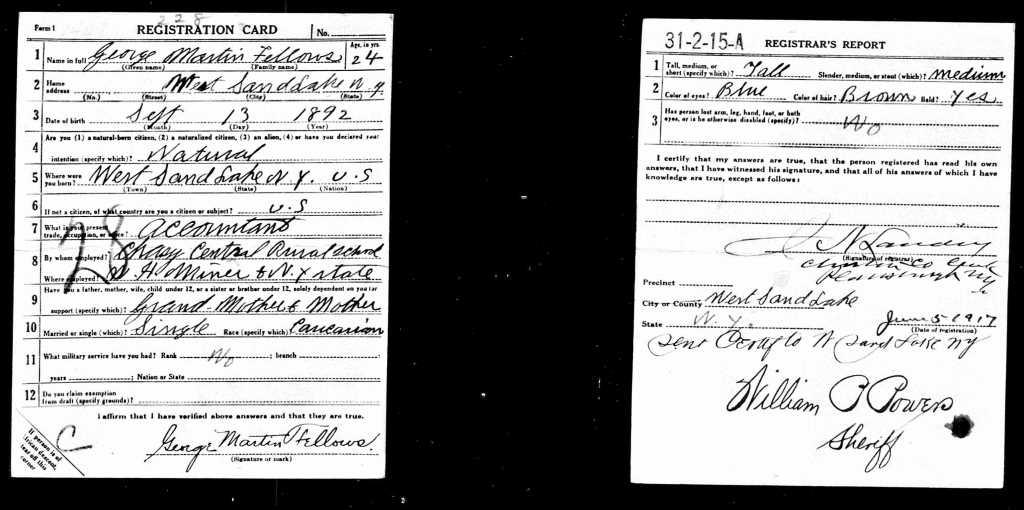 228
Form 1 REGISTRATION CARD No.
1 Name in full George Martin Fellows Age, in yrs. 24
(Given name) (Family name)
2 Home address West Sand Lake N.Y.
(No.) (Street) (City) (State)
3 Date of birth Sept 13 1892
(Month) (Day) (Year)
4 Are you (1) a natural-born citizen, (2) a naturalized citizen, (3) an alien, (4) or have you declared your
intention (specify which)? Natural
5 Where were you born? West Sand Lake N.Y. U.S
(Town) (State) (Nation)
6 If not a citizen, of what country are you a citizen or subject? U.S
7 What is your present trade, occupation, or office? Accountant
8 By whom employed? Central Rural School
Where employed? W. H. Miner & N.Y State
28
9 Have you a father, mother, wife, child under 12, or a sister or brother under 12, solely dependent on you for
support (specify which)? Grand Mother & Mother
10 Married or single (which)? Single Race (specify which)? Caucasion
11 What military service have you had? Rank No ; branch
years ; Nation or State
12 Do you claim exemption
from draft (specify grounds)?
I affirm that I have verified above answers and that they are true.
George Martin Fellows.
(Signature or mark)
If person is of African descent, tear off this corner
C
31-2-15-A REGISTRAR'S REPORT
1 Tall, medium, or short (specify which)? Tall Slender, medium, or stout (which)? Medium
2 Color of eyes? Blue Color of hair? Brown Bald? Yes
3 Has person lost arm, leg, hand, foot, or both
eyes, or is he otherwise disabled (specify)? No
I certify that my answers are true, that the person registered has read his own
answers, that I have witnessed his signature, and that all of his answers of which I have
knowledge are true, except as follows:
(Signature of registrar)
Clinton Co
Plattsburgh N.Y.
Precinct
City or County West Sand Lake
State N.Y. June 5-1917
(Date of registration)
Sent to W Sand Lake NY
William P Powers
Sheriff